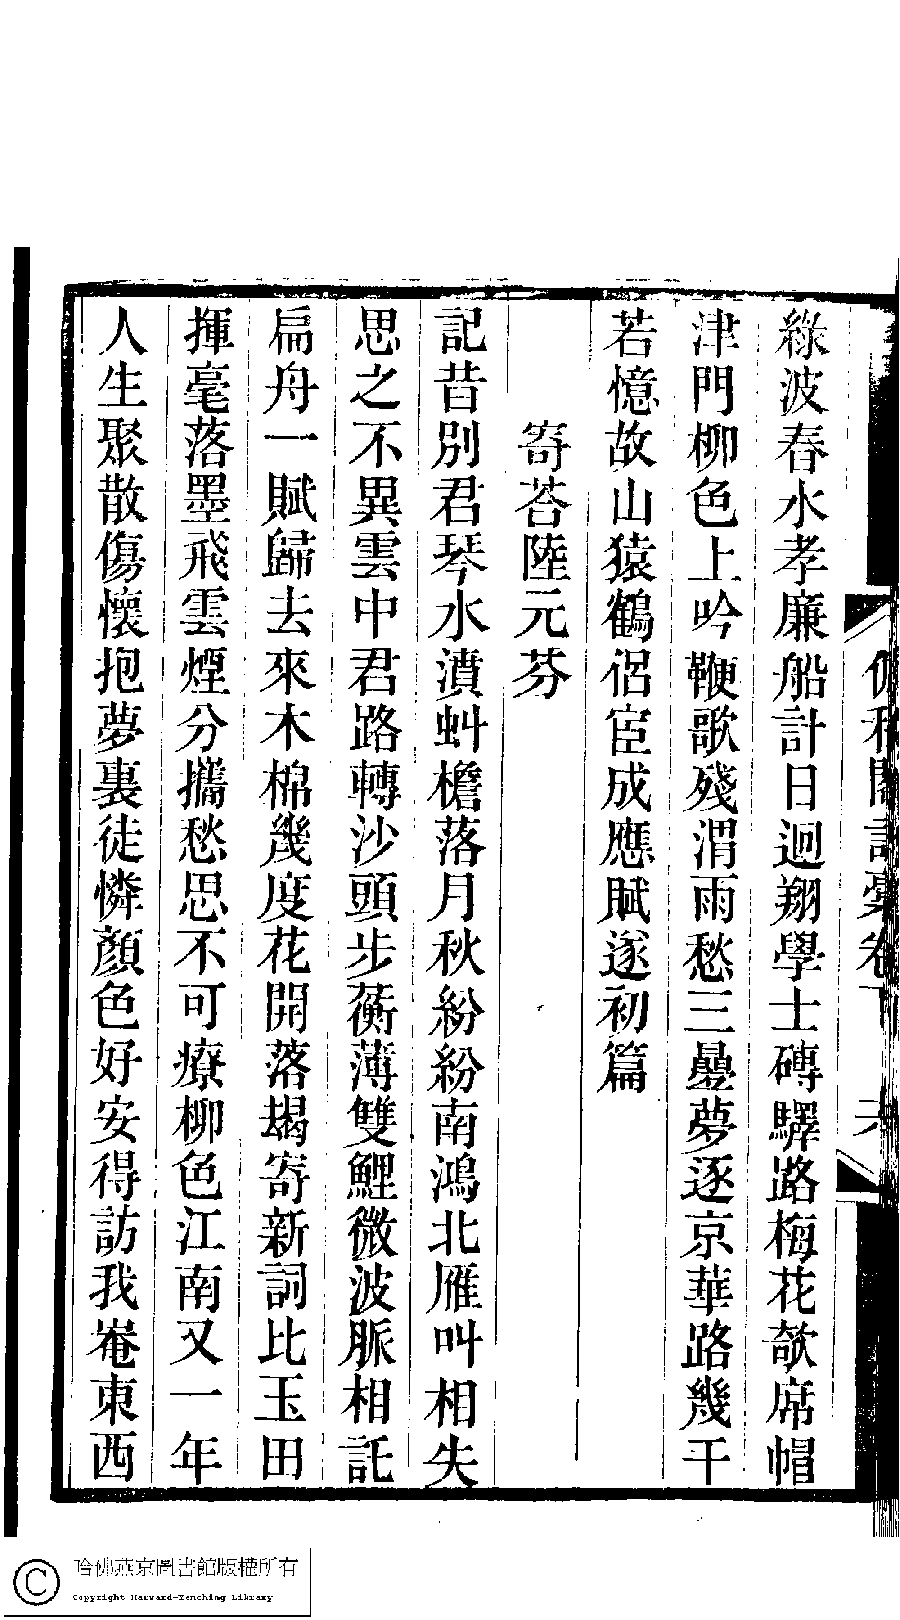 綠波春水孝廉船計日迴翔學士磚驛路梅花欹席帽
津門柳色上吟鞭歌殘渭雨愁三疊夢逐京華路幾千
若憶故山猿鶴侶宦成應賦遂初篇
寄荅陸元芬
記昔別君琴水濆虯檐落月秋紛紛南鴻北雁叫相失
思之不異雲中君路轉沙頭步蘅薄雙鯉微波脈相託
扁舟一賦歸去來木棉幾度花開落朅寄新詞比玉田
揮毫落墨飛雲煙分攜愁思不可療柳色江南又一年
人生聚散傷懷抱夢裏徒憐顏色好安得訪我菴東西
閣詩稾卷下
六
哈佛燕京圖書館版權所有
Copyright Harvard-Yenching Library